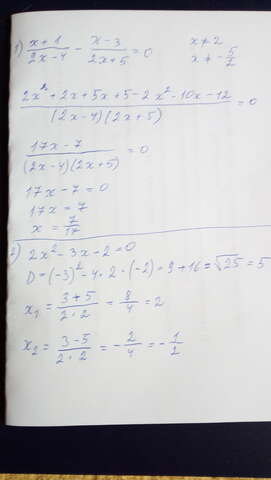 1) (x+1)/(2x-4) - (x-3)/(2x+5) = 0 x≠2
x≠-5/2
(2x²+2x+5x+5-2x²-10x-12)/((2x-4)(2x+5)) = 0
(17x-7)/((2x-4)(2x+5)) = 0
17x-7=0
17x=7
x=7/17
2) 2x²-3x-2=0
D=(-3)²-4·2·(-2)=9+16=√25=5
x₁=(3+5)/(2·2)=8/4=2
x₂=(3-5)/(2·2)=-2/4=-1/2